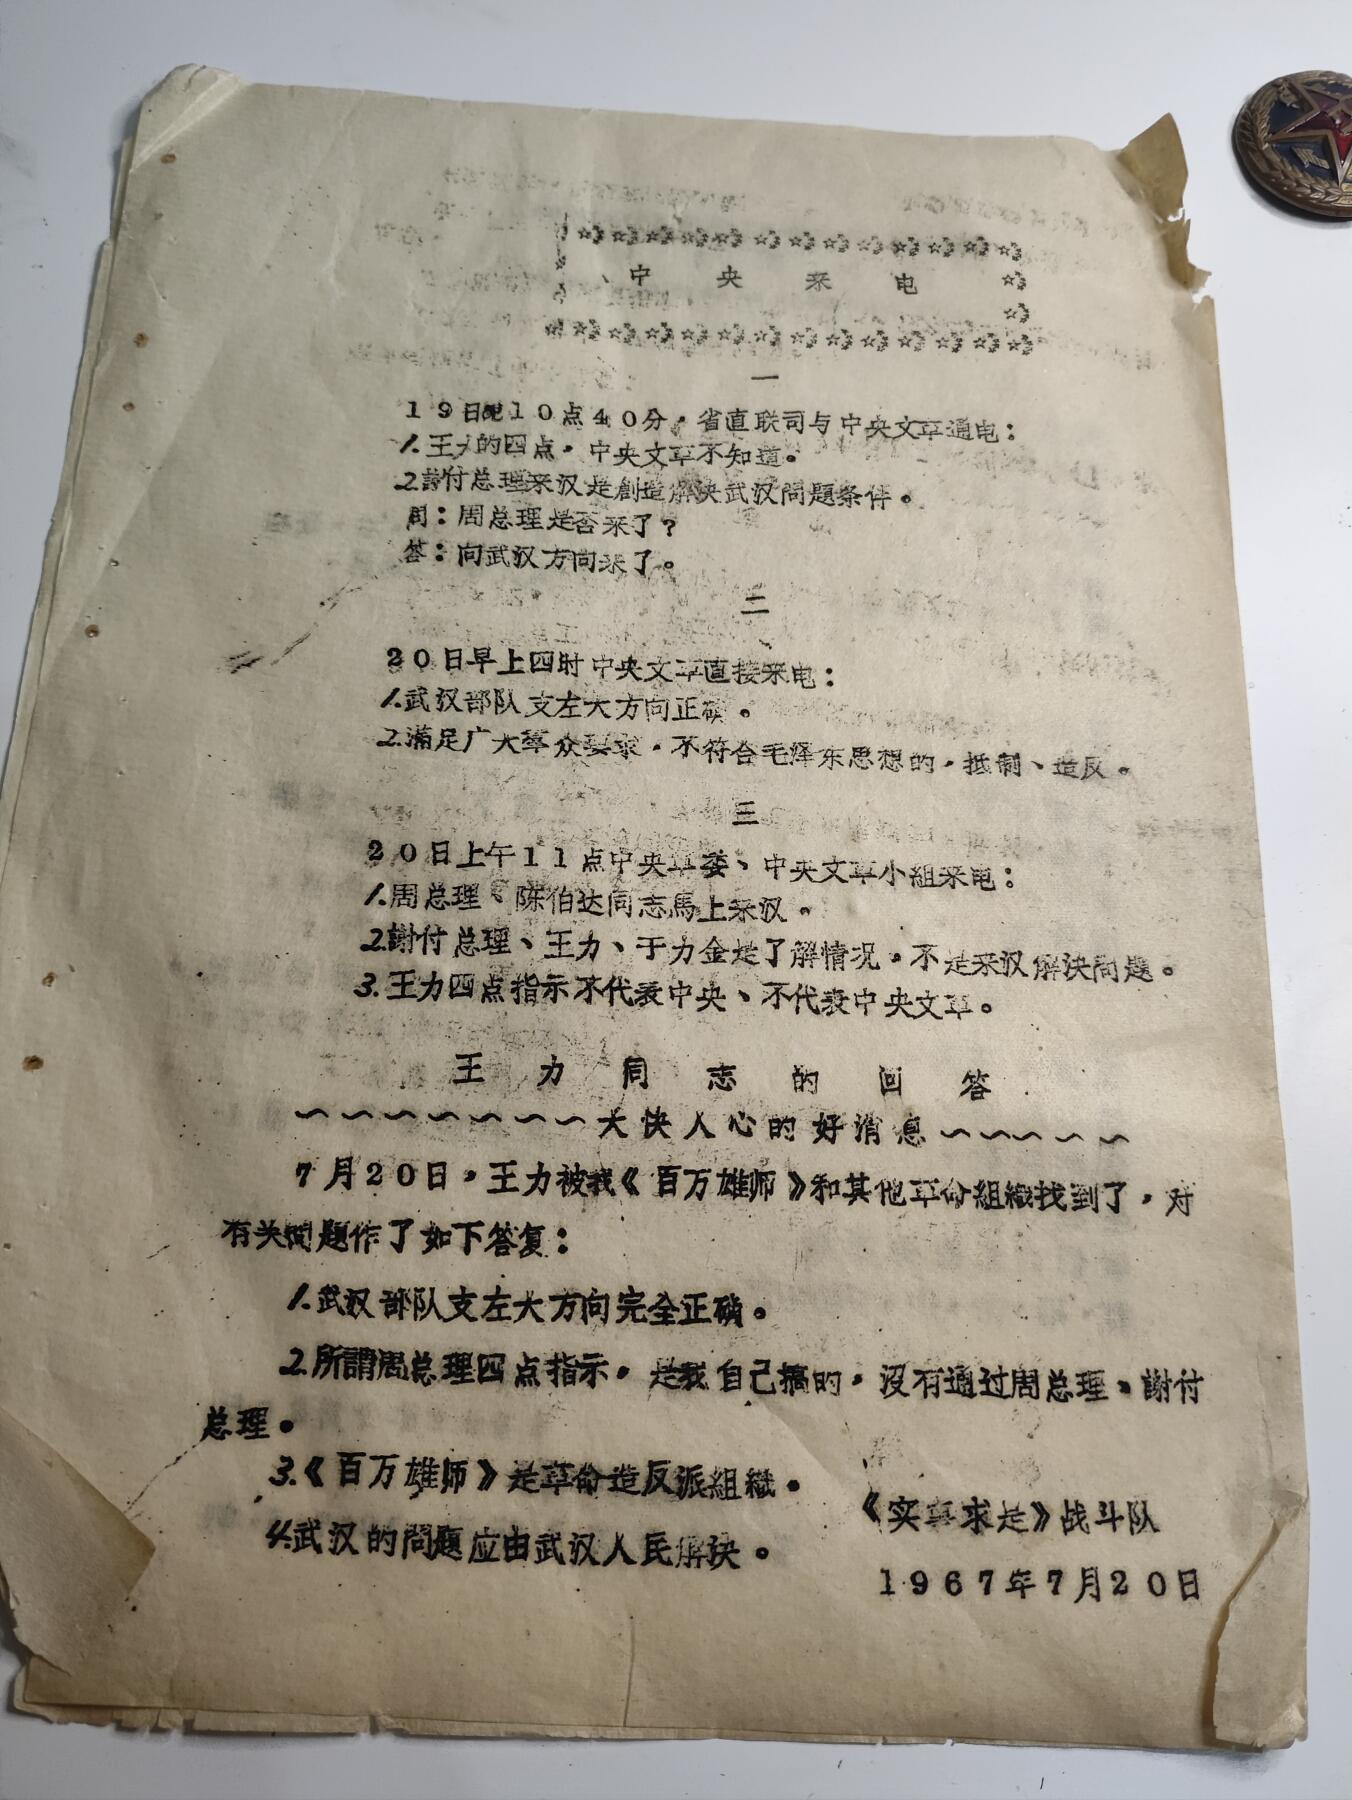 中央来电
一
19日晚10点40分，省直联司与中央文革通电：
1.王力的四点，中央文革不知道。
2.謝付总理来汉是創造解决武汉問題条件。
問：周总理是否来了？
答：向武汉方向来了。
二
20日早上四时中央文革直接来电：
1.武汉部队支左大方向正确。
2.滿足广大羣众要求，不符合毛泽东思想的，抵制、造反。
三
20日上午11点中央军委、中央文革小組来电：
1.周总理、陈伯达同志馬上来汉。
2.謝付总理、王力、于力金是了解情况，不是来汉解决問題。
3.王力四点指示不代表中央、不代表中央文革。
王力同志的回答
～～～～～～～大快人心的好消息～～～～～
7月20日，王力被我《百万雄师》和其他革命組織找到了，对
有关問題作了如下答复：
1.武汉部队支左大方向完全正确。
2.所謂周总理四点指示，是我自己搞的，沒有通过周总理、謝付
总理。
3.《百万雄师》是革命造反派組織。
4.武汉的問題应由武汉人民解决。
《实事求是》战斗队
1967年7月20日